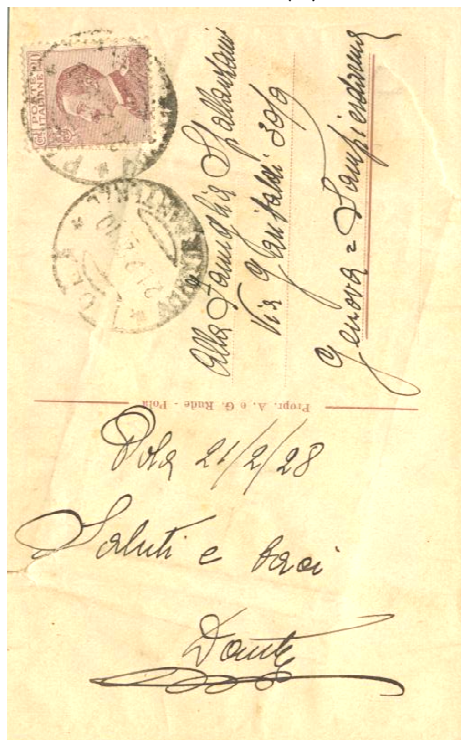 POSTE
ITALIANE
Alla Famiglia Spallanzani
Via Garibaldi 30/9
Genova = Sampierdarena
Propr. A. e G. Rude - Pola
Pola 21/2/28
Saluti e baci
Dante